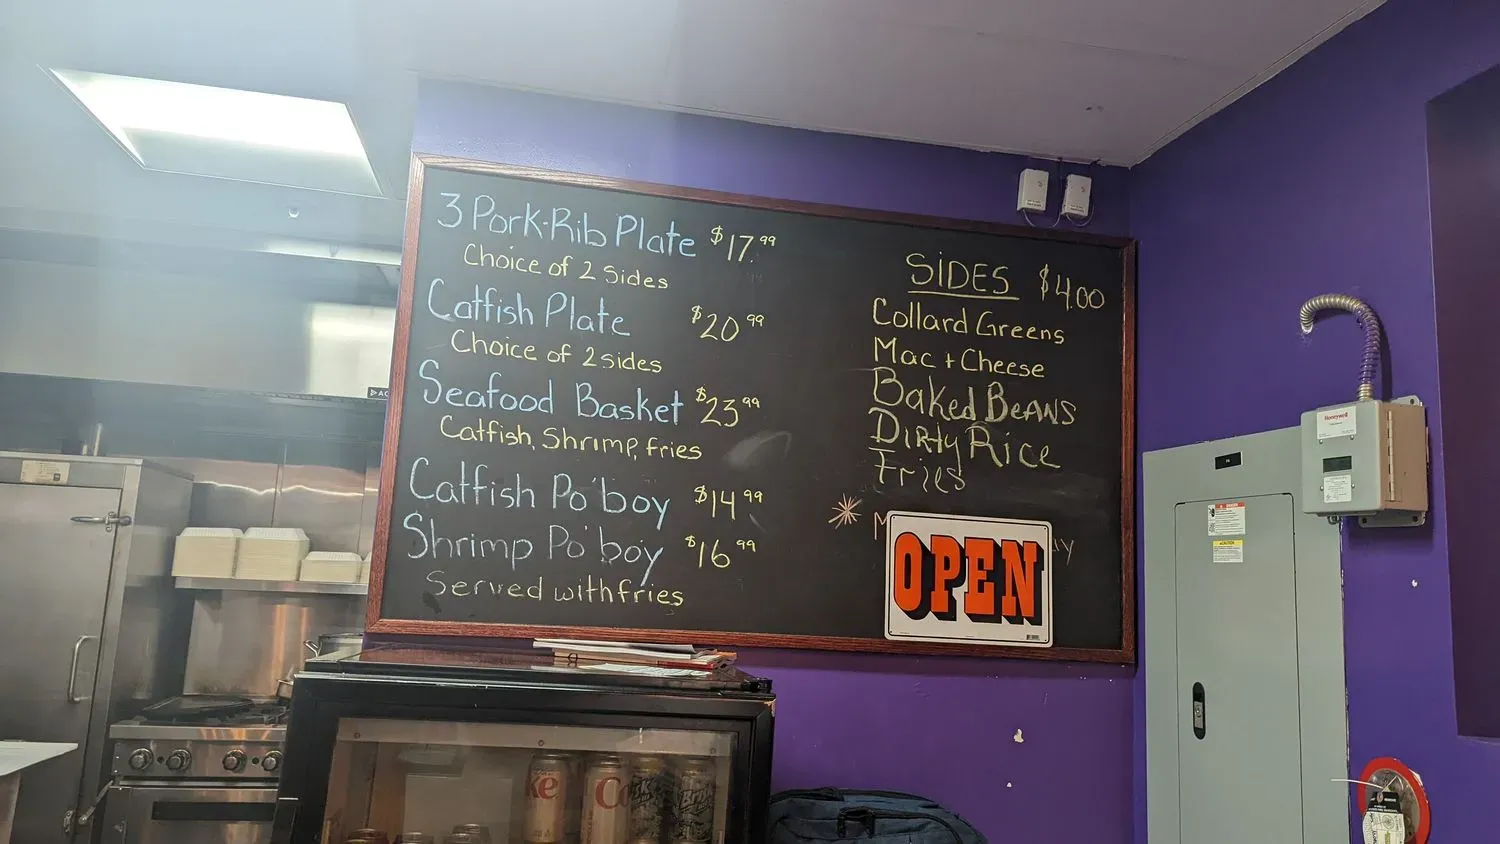 3 Pork-Rib Plate $17.99
Choice of 2 Sides
Catfish Plate $20.99
Choice of 2 sides
Seafood Basket $23.99
Catfish, Shrimp, fries
Catfish Po'boy $14.99
Shrimp Po'boy $16.99
Served with fries
SIDES $4.00
Collard Greens
Mac + Cheese
Baked BeANS
DIRty Rice
Fries
OPEN
Honeywell
ke
Co